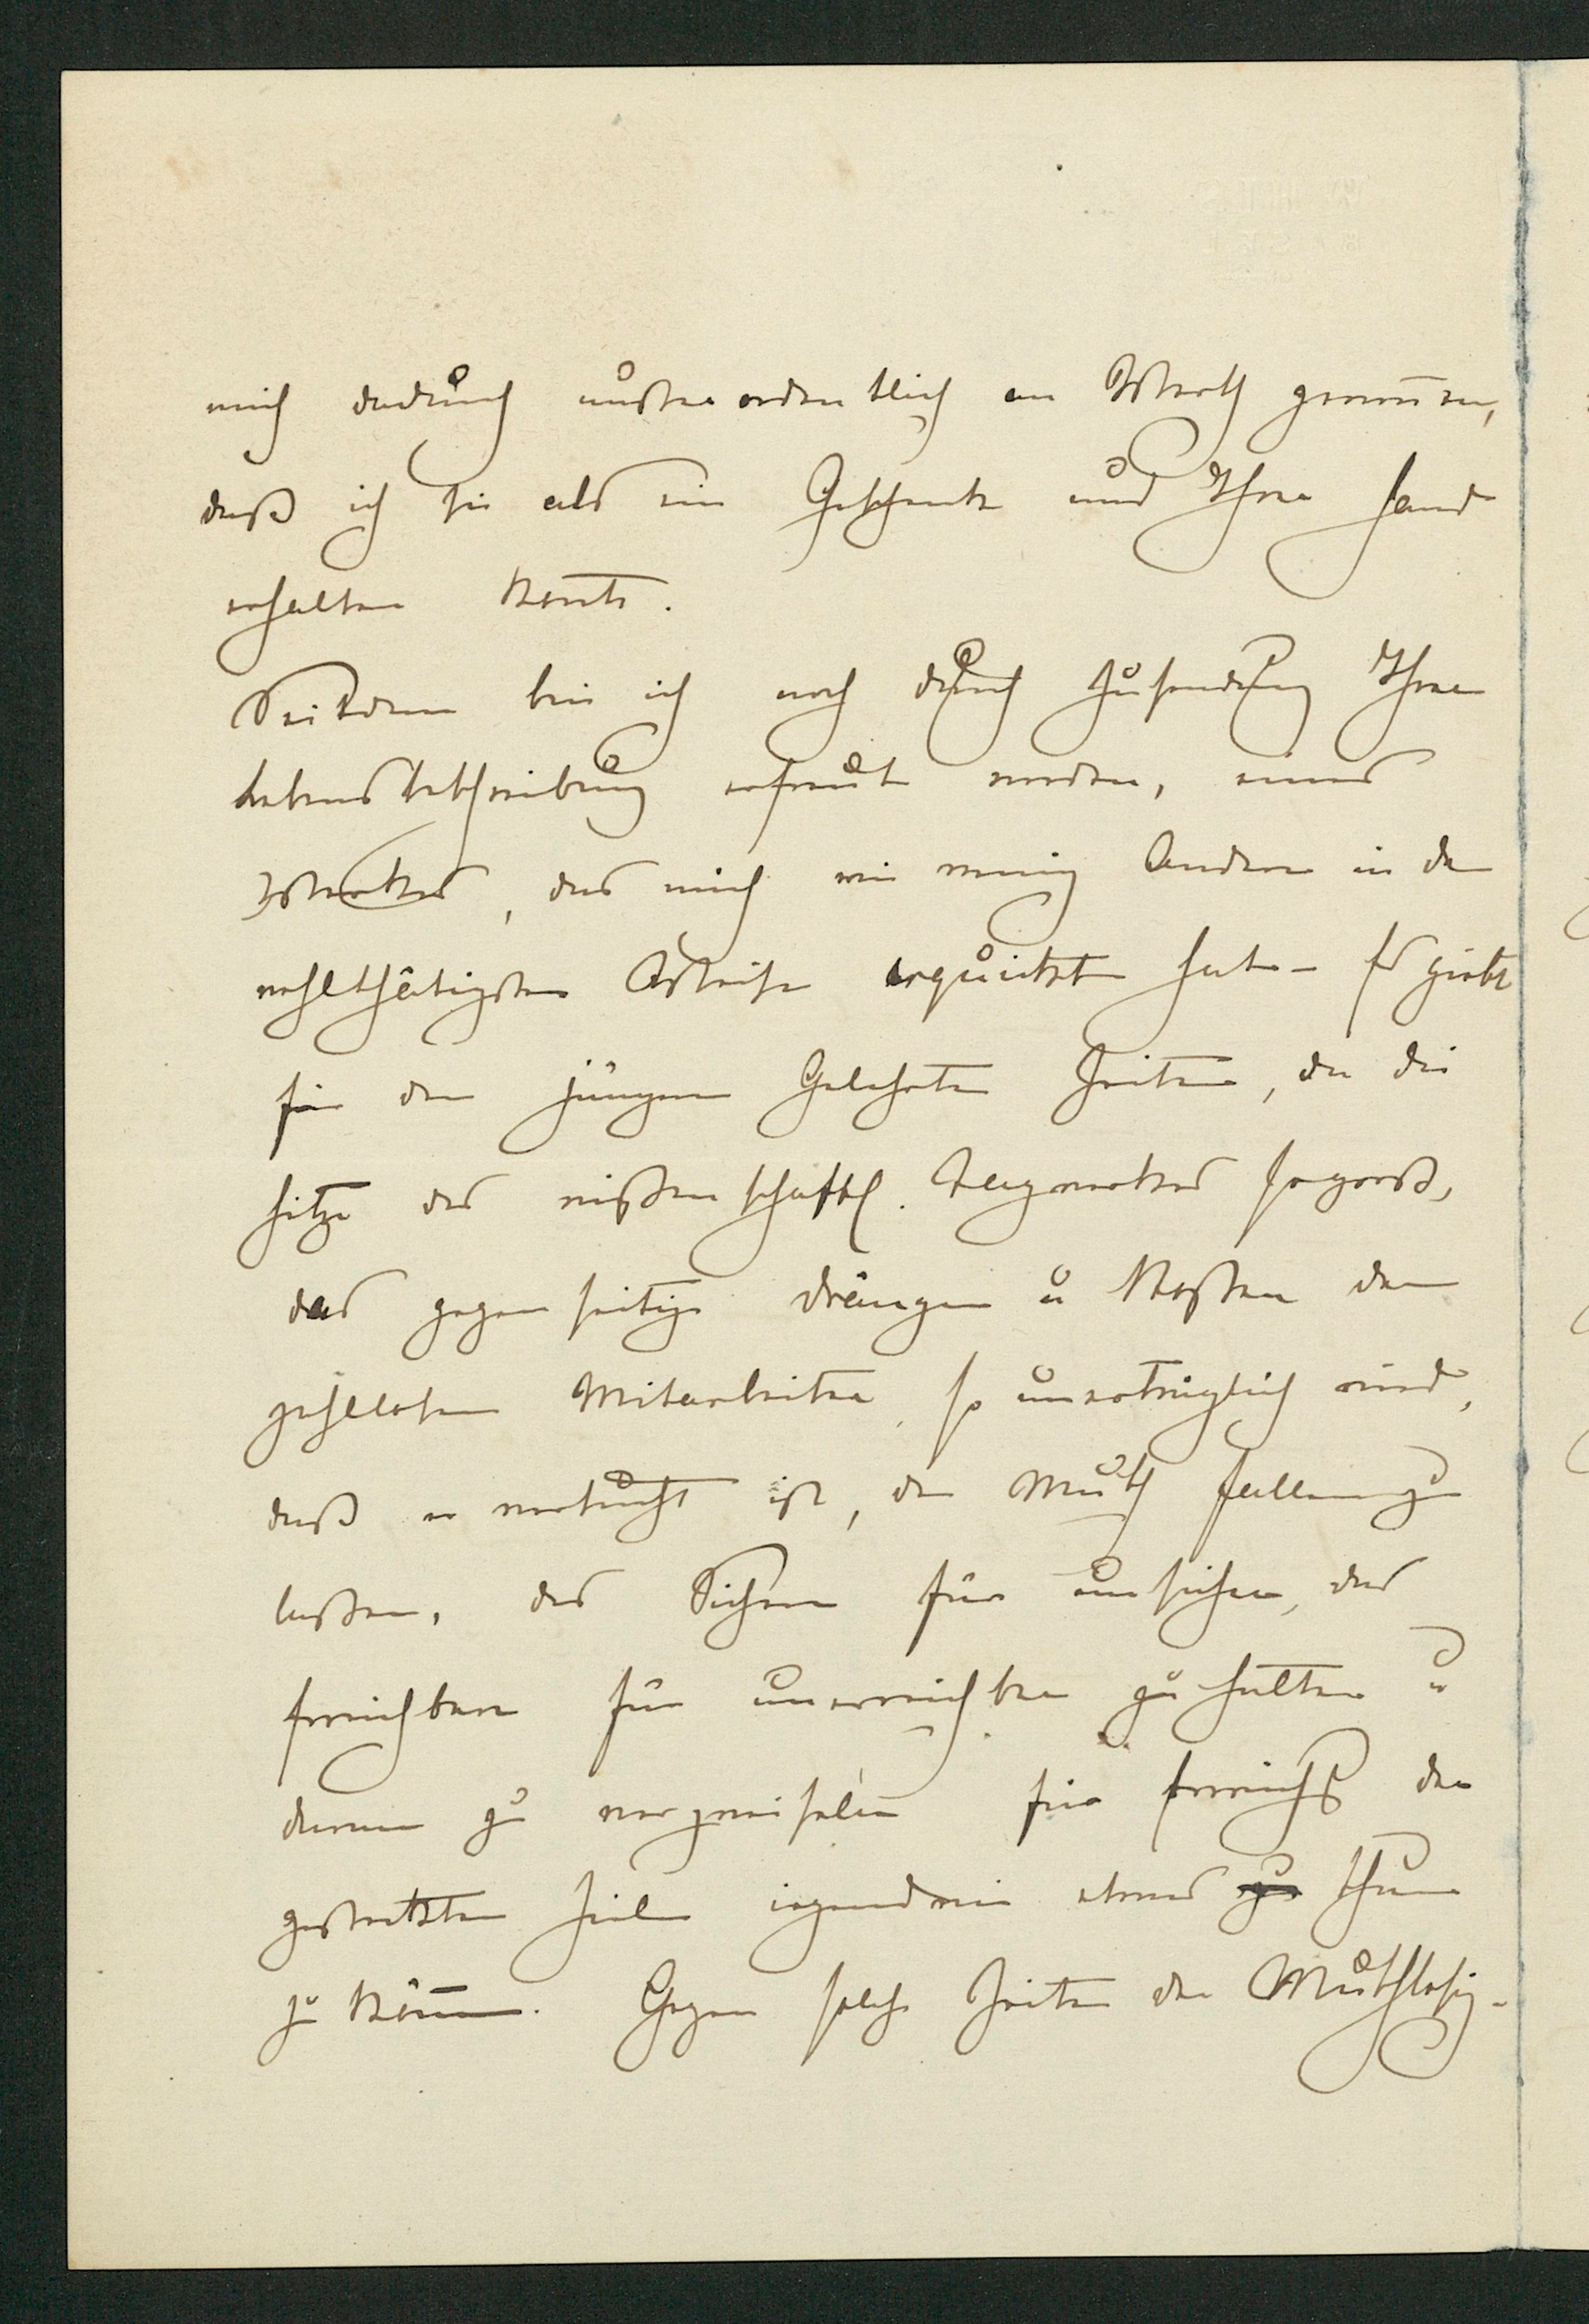 mich dadurch außerordentlich an Werth gewon̄en,
daß ich sie als ein Geschenk aus Ihrer Hand
erhalten konnte.
Seitdem bin ich noch durch Zusendung Ihrer
Lebensbeschreibung erfreut worden, eines
Werkes, das mich wie wenig Andere in der
wohlthätigsten Weise erquickt hat – Es giebt
für den jüngern Gelehrten Zeiten, da die
Hitze des wißenschaftl. Tagwerkes so groß,
das gegenseitige Drängen u Stoßen der
zahllosen Mitarbeiter so unerträglich wird,
daß er versucht ist, den Muth fallen zu
laßen, das Sichere für unsicher, das
Erreichbare für unerreichbar zu halten u
daran zu verzweifeln für Erreichg der
gesteckten Ziele irgendwie etwas zu thun
zu kön̄en. Gegen solche Zeiten der Muthlosig-